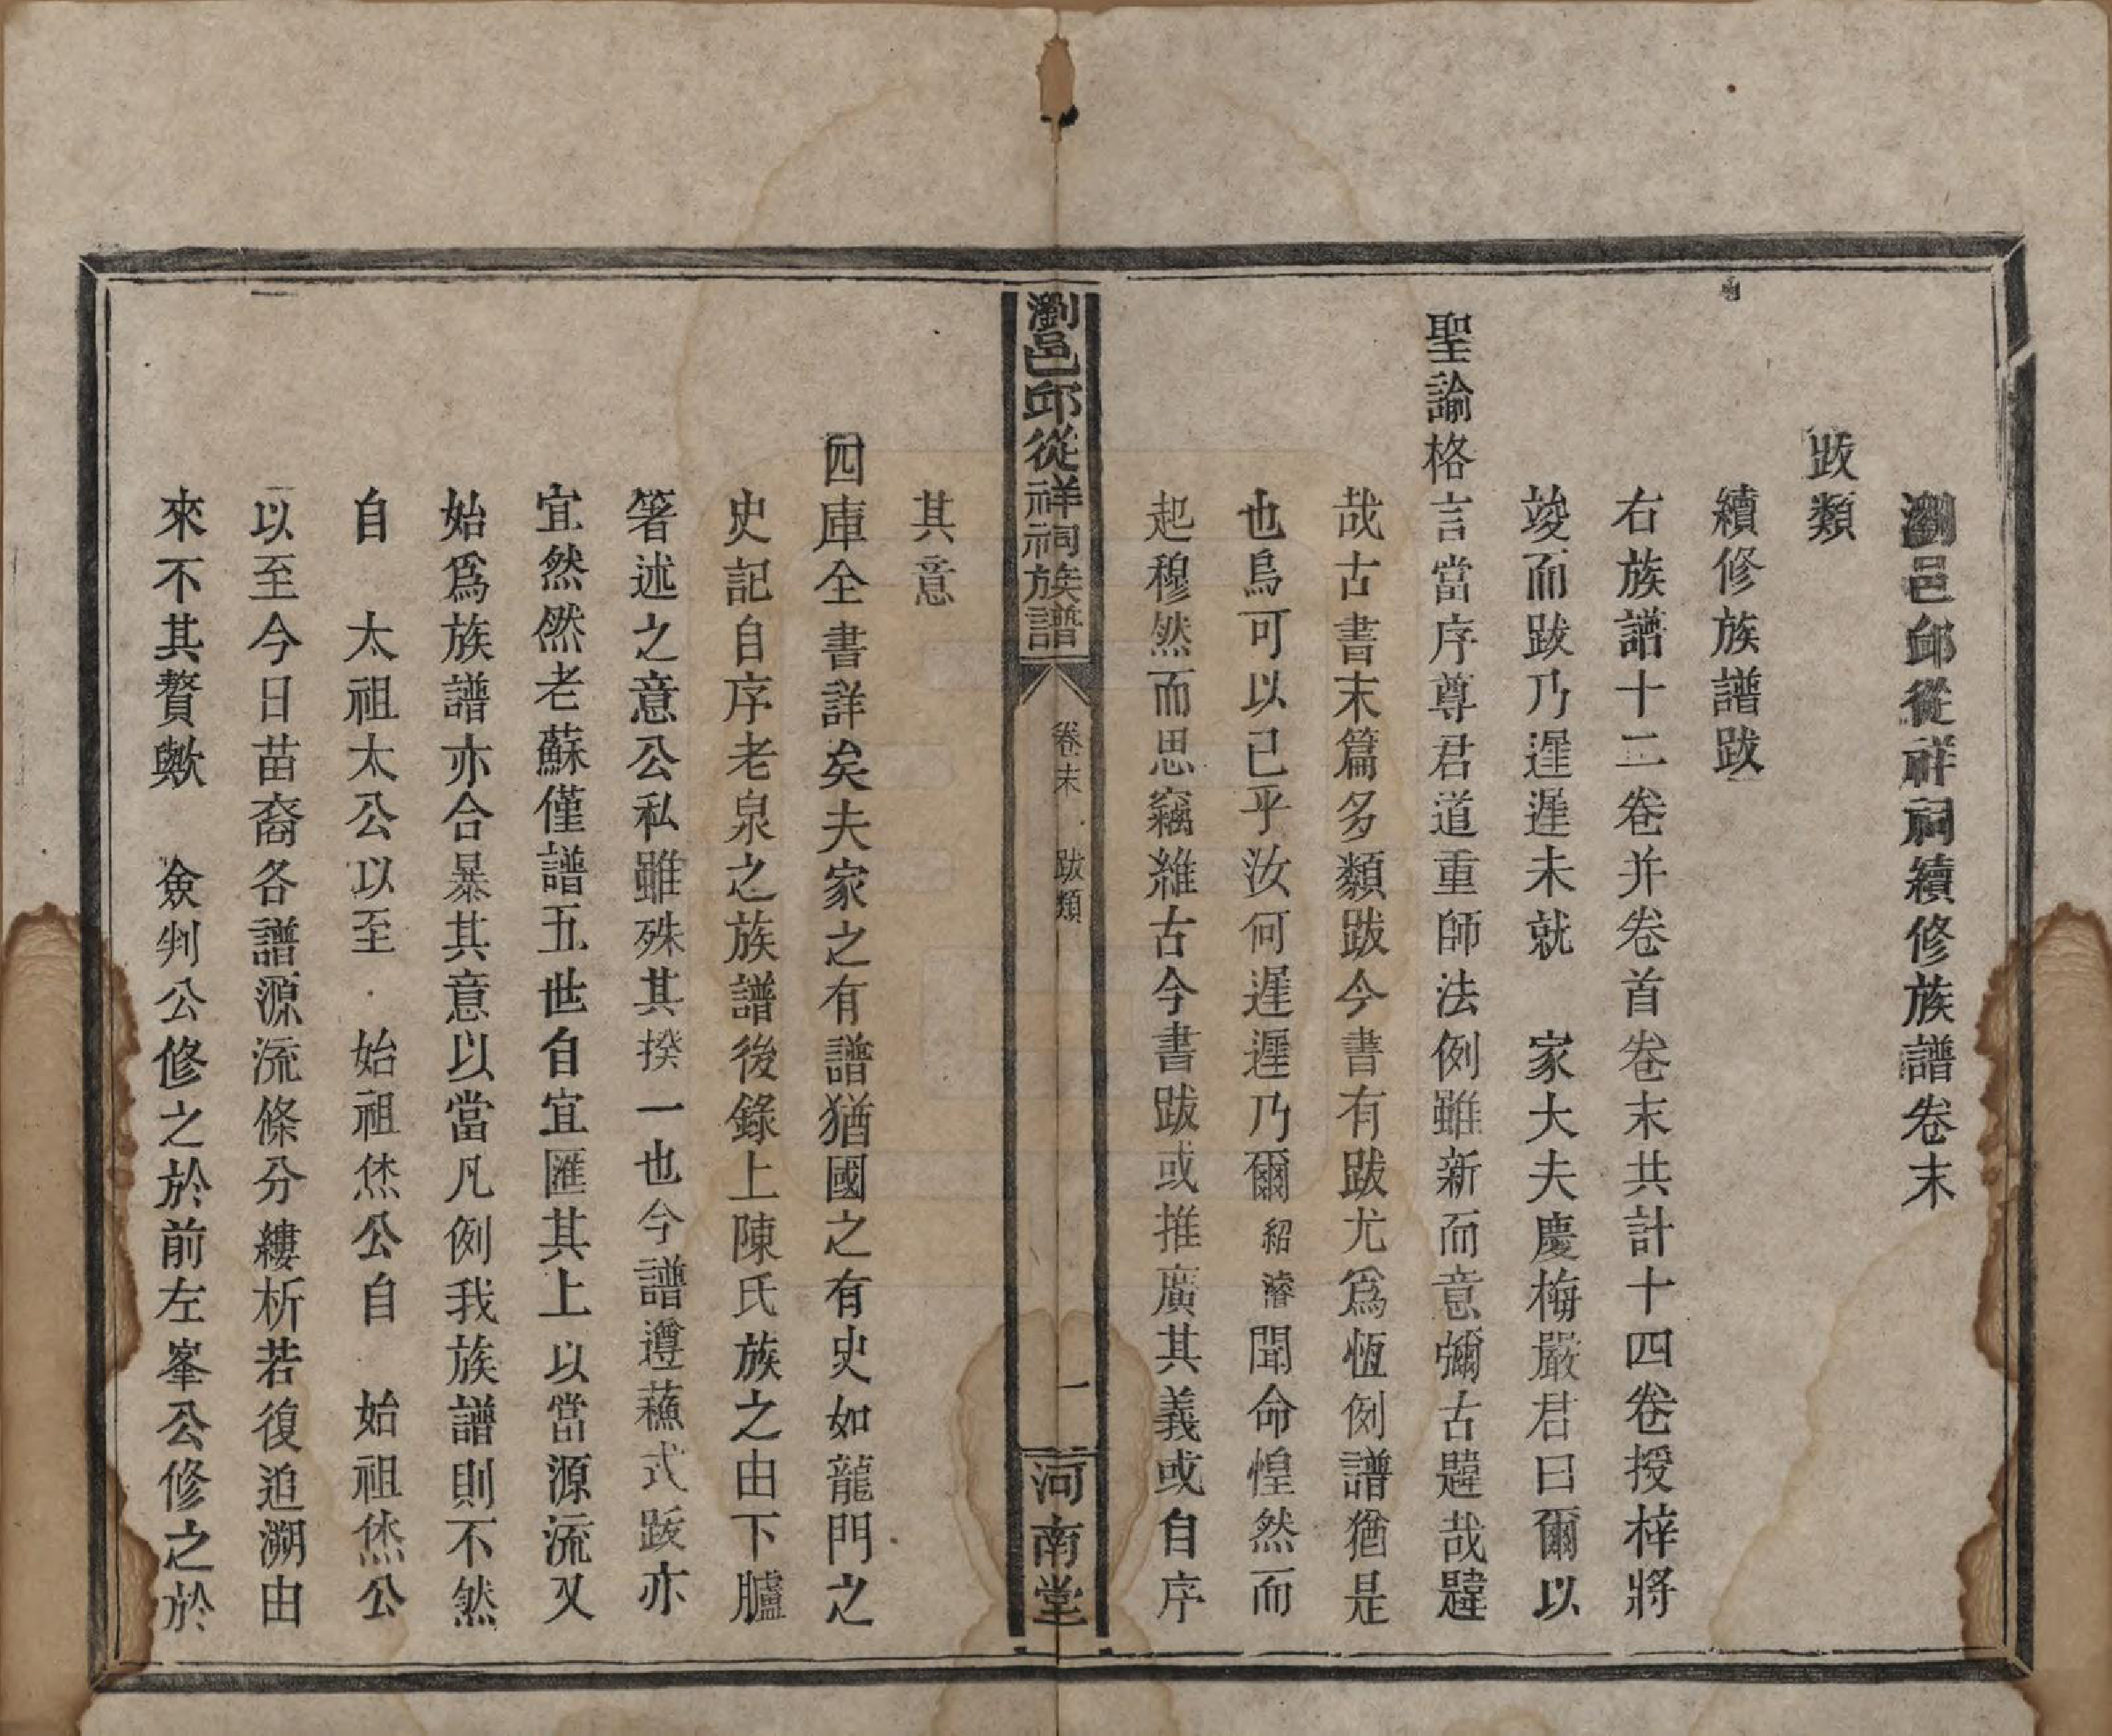 瀏邑邱從祥祠續修族譜卷末
跋類
續修族譜跋
右族譜十二卷并卷首卷末共計十四卷授梓將
竣而跋乃遲遲未就　家大夫慶梅嚴君曰爾以
聖諭格言當序尊君道重師法例雖新而意彌古韙哉韙
哉古書末篇多類跋今書有跋尤爲恆例譜猶是
也烏可以已乎汝何遲遲乃爾紹濬聞命惶然而
起穆然而思竊維古今書跋或推廣其義或自序
瀏邑邱從祥祠族譜　卷末　跋類　一　河南堂
其意
四庫全書詳矣夫家之有譜猶國之有史如龍門之
史記自序老泉之族譜後錄上陳氏族之由下臚
箸述之意公私雖殊其揆一也今譜遵蘓式跋亦
宜然然老蘇僅譜五世自宜匯其上以當源流又
始爲族譜亦合暴其意以當凡例我族譜則不然
自　太祖太公以至　始祖烋公自　始祖烋公
以至今日苗裔各譜源流條分縷析若復追溯由
來不其贅歟　僉判公修之於前左峯公修之於